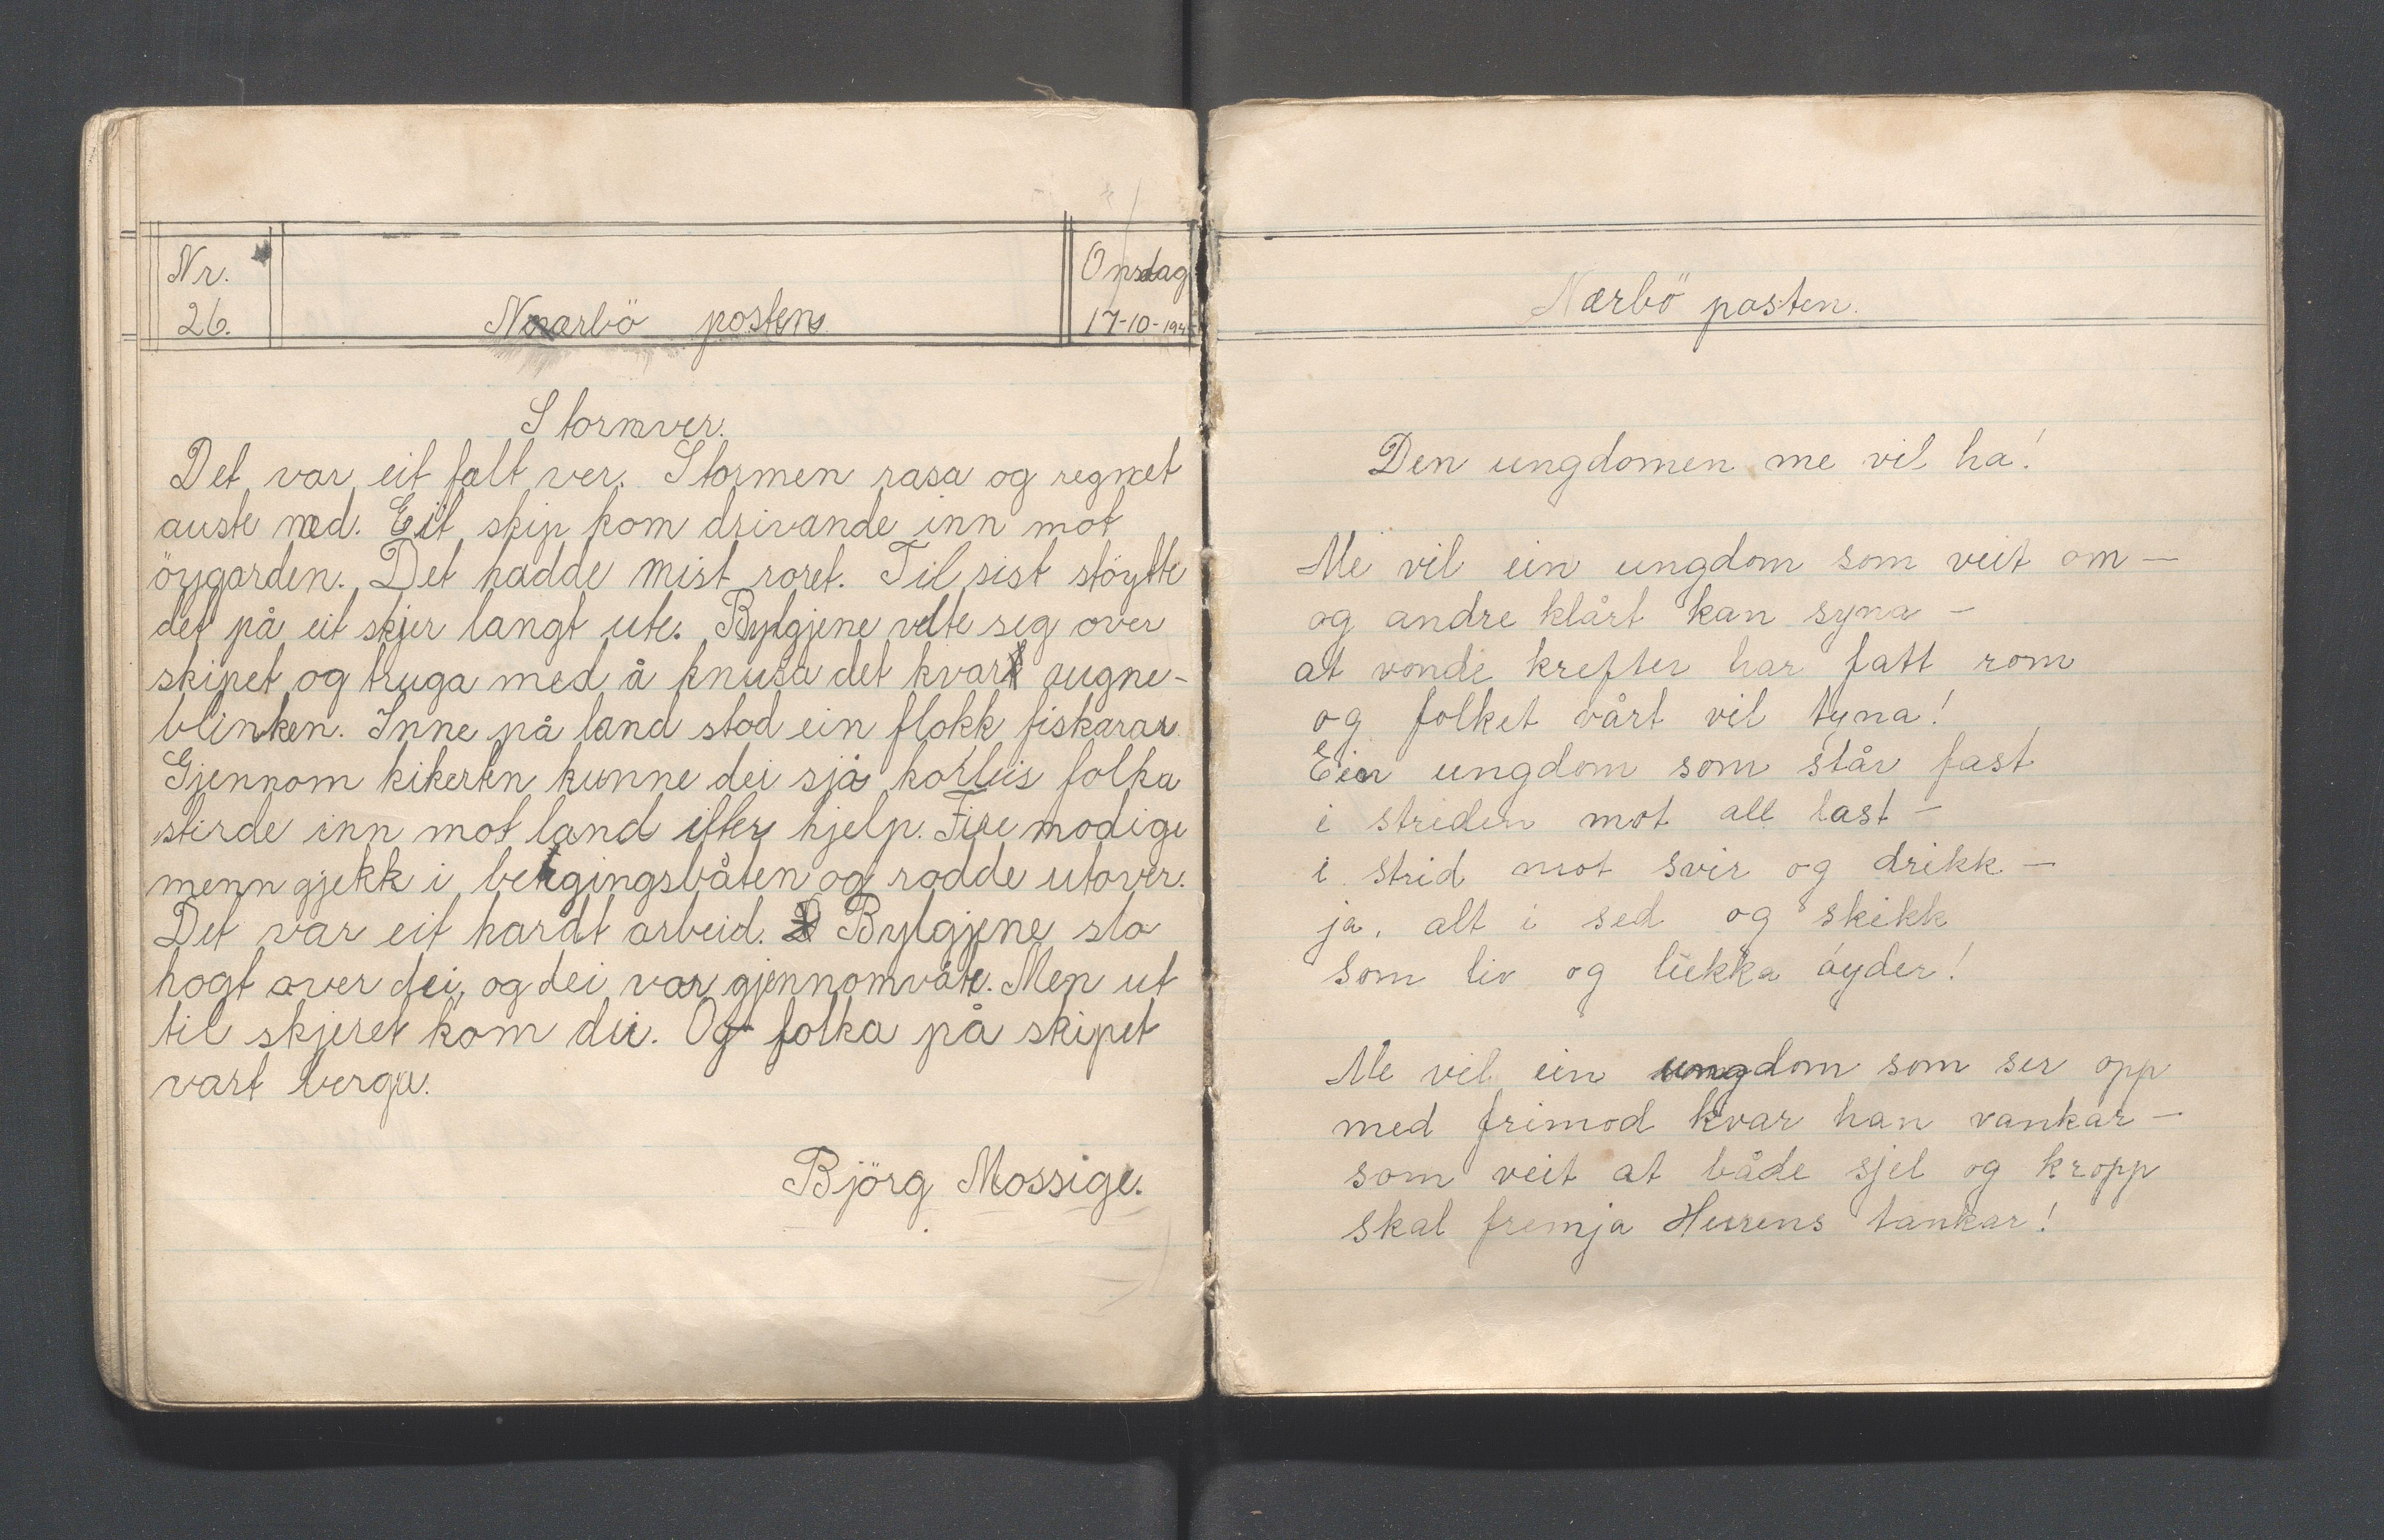 Nr.
26.
Nærbö posten
Onsdag
17-10-194
Stormver.
Det var eit falt ver. Stormen rasa og regnet
auste ned. Eit skip kom drivande inn mot
öygarden. Det hadde mist roret. Til sist stöytte
det på eit skjer langt ute. Bylgjene velte seg over
skipet og truga med å knusa det kvart augne-
blinken. Inne på land stod ein flokk fiskarar.
Gjennom kikerten kunne dei sjå korleis folka
stirde inn mot land ifter hjelp. Fire modige
menn gjekk i bergingsbåten og rodde utover.
Det var eit hardt arbeid. Bylgjene slo
hogt over dei, og dei var gjennomvåte. Men ut
til skjeret kom dei. Og folka på skipet
vart berga.
Björg Mossige.
Nærbö posten.
Den ungdomen me vil ha!
Me vil ein ungdom som veit om —
og andre klårt kan syna —
at vonde krefter har fått rom
og folket vårt vil tyna!
Ein ungdom som står fast
i striden mot all last —
i strid mot svir og drikk —
ja, alt i sed og skikk
som liv og lukka öyder!
Me vil ein ungdom som ser opp
med frimod kvar han vankar —
som veit at både sjel og kropp
skal fremja Herrens tankar!